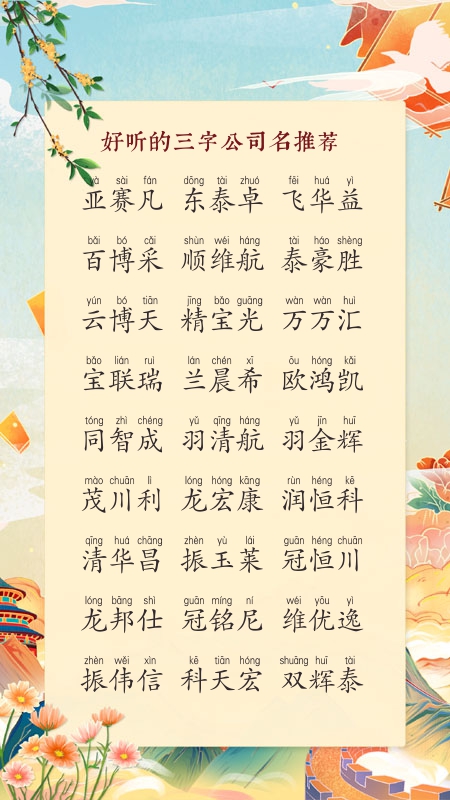 好听的三字公司名推荐
yà sài fán dōng tài zhuó fēi huá yì
亚赛凡 东泰卓 飞华益
bǎi bó cǎi shùn wéi háng tài háo shèng
百博采 顺维航 泰豪胜
yún bó tiān jīng bǎo guāng wàn wàn huì
云博天 精宝光 万万汇
bǎo lián ruì lán chén xī ōu hóng kǎi
宝联瑞 兰晨希 欧鸿凯
tóng zhì chéng yǔ qīng háng yǔ jīn huī
同智成 羽清航 羽金辉
mào chuān lì lóng hóng kāng rùn héng kē
茂川利 龙宏康 润恒科
qīng huá chāng zhèn yù lái guān héng chuān
清华昌 振玉莱 冠恒川
lóng bāng shì guān míng ní wéi yōu yì
龙邦仕 冠铭尼 维优逸
zhèn wěi xìn kē tiān hóng shuāng huī tài
振伟信 科天宏 双辉泰